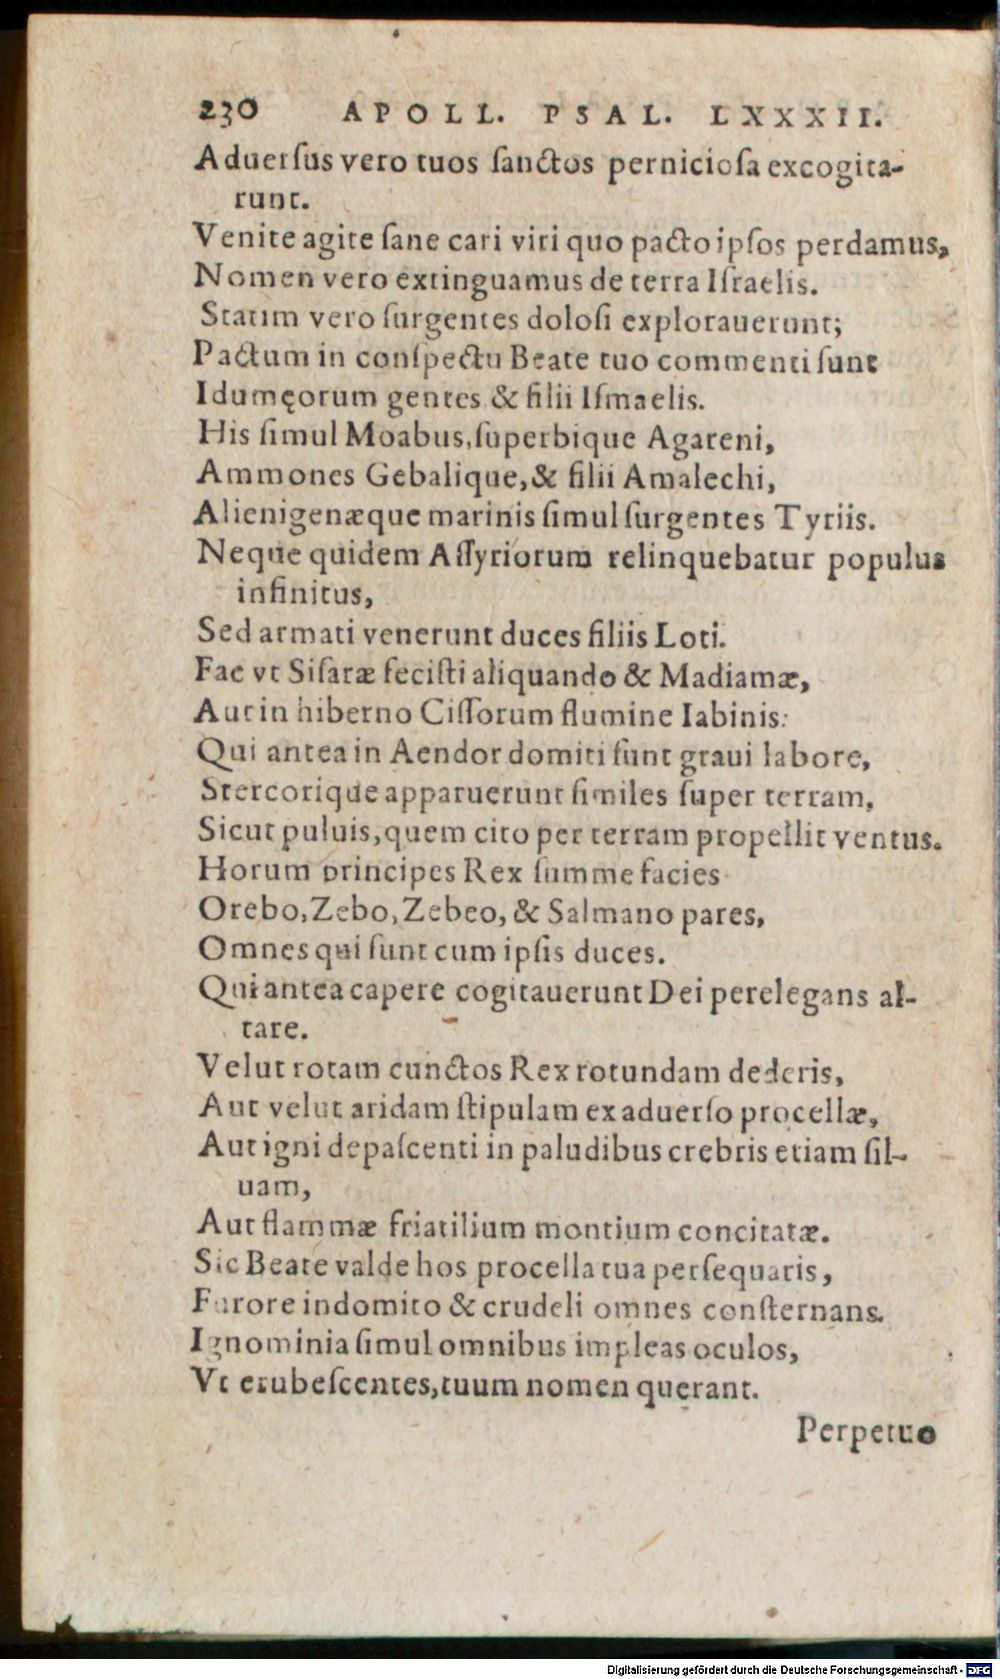 230 APOLL. PSAL. LXXXII.
Aduerſus vero tuos ſanctos pernicioſa excogita-
runt.
Venite agite ſane cari viri quo pacto ipſos perdamus,
Nomen vero extinguamus de terra Iſraelis.
Statim vero ſurgentes doloſi explorauerunt;
Pactum in conſpectu Beate tuo commenti ſunt
Idumęorum gentes & filii Iſmaelis.
His ſimul Moabus, ſuperbique Agareni,
Ammones Gebalique, & filii Amalechi,
Alienigenæque marinis ſimul ſurgentes Tyriis.
Neque quidem Aſſyriorum relinquebatur populus
infinitus,
Sed armati venerunt duces filiis Loti.
Fac vt Siſaræ feciſti aliquando & Madiamæ,
Aut in hiberno Ciſſorum flumine Iabinis:
Qui antea in Aendor domiti ſunt graui labore,
Stercorique apparuerunt ſimiles ſuper terram,
Sicut puluis, quem cito per terram propellit ventus.
Horum principes Rex ſumme facies
Orebo, Zebo, Zebeo, & Salmano pares,
Omnes qui ſunt cum ipſis duces.
Qui antea capere cogitauerunt Dei perelegans al-
tare.
Velut rotam cunctos Rex rotundam dederis,
Aut velut aridam ſtipulam ex aduerſo procellæ,
Aut igni depaſcenti in paludibus crebris etiam ſil-
uam,
Aut flammæ friatilium montium concitatæ.
Sic Beate valde hos procella tua perſequaris,
Furore indomito & crudeli omnes conſternans.
Ignominia ſimul omnibus impleas oculos,
Vt erubeſcentes, tuum nomen querant.
Perpetuo
Digitalisierung gefördert durch die Deutsche Forschungsgemeinschaft - DFG